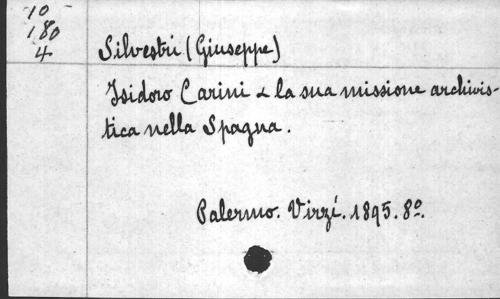 10
180
4
Silvestri (Giuseppe)
Isidoro Carini e la sua missione archivis-
tica nella Spagna.
Palermo. Virzí. 1895. 8º.